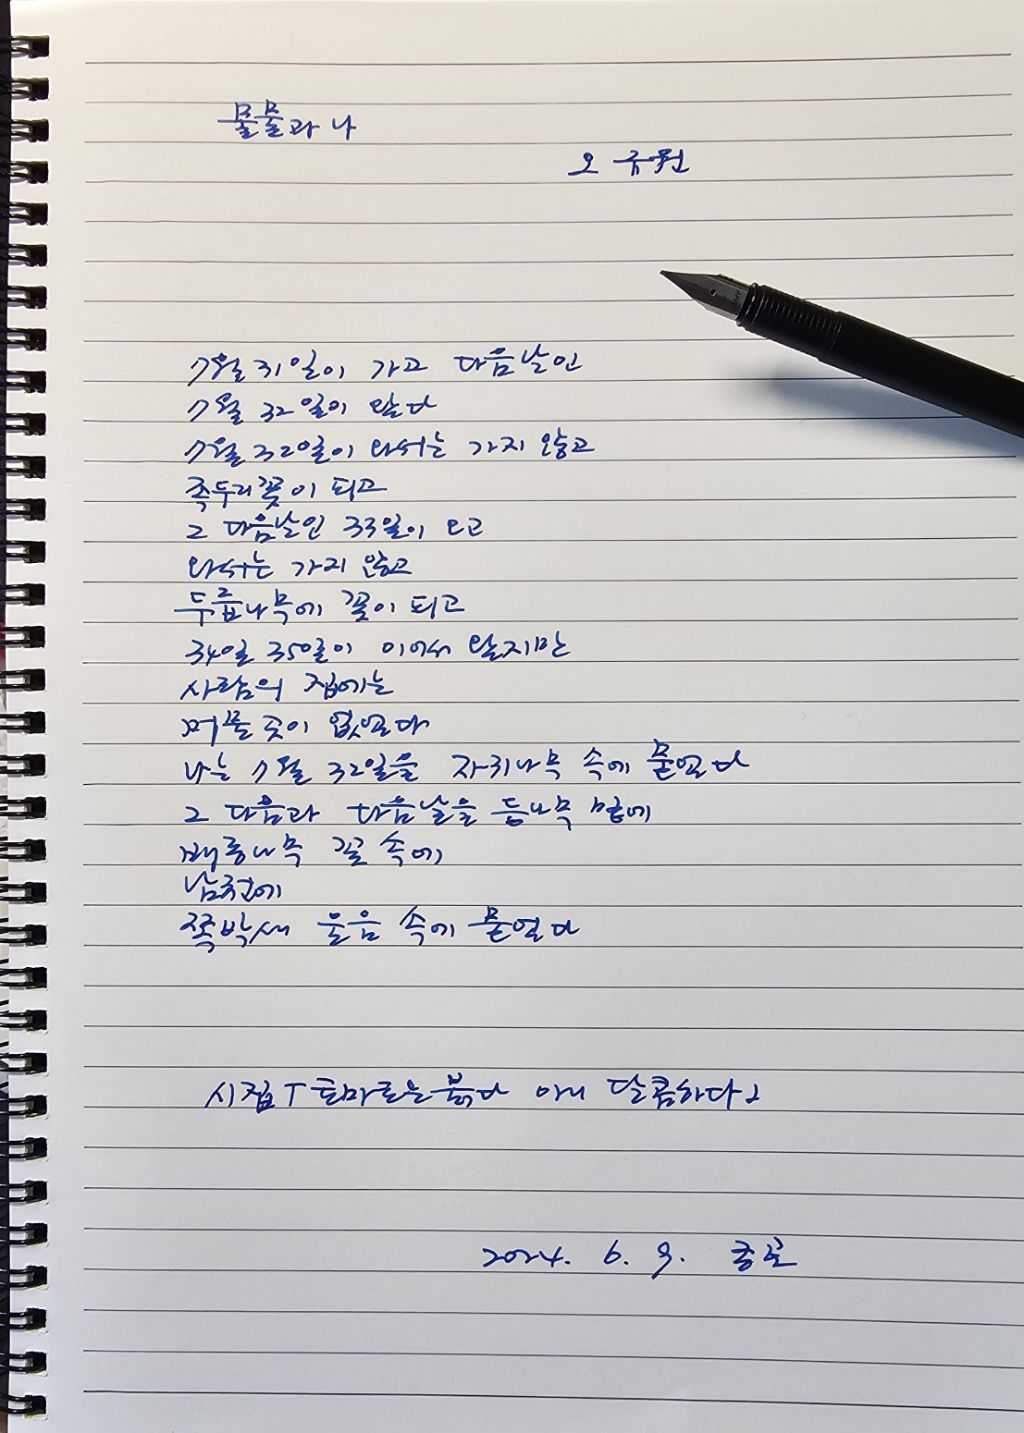 물물과 나
오 규원
7월 31일이 가고 다음날인
7월 32일이 왔다
7월 32일이 와서는 가지 않고
족두리꽃이 피고
그 다음날인 33일이 오고
와서는 가지 않고
두릅나무에 꽃이 피고
34일 35일이 이어서 왔지만
사람의 집에는
머물 곳이 없었다
나는 7월 32일을 자귀나무 속에 묻었다
그 다음과 다음날을 등나무 밑에
배롱나무 꽃 속에
남천에
쪽박새 울음 속에 묻었다
시집 「토마토는 붉다 아니 달콤하다」
2024. 6. 9.